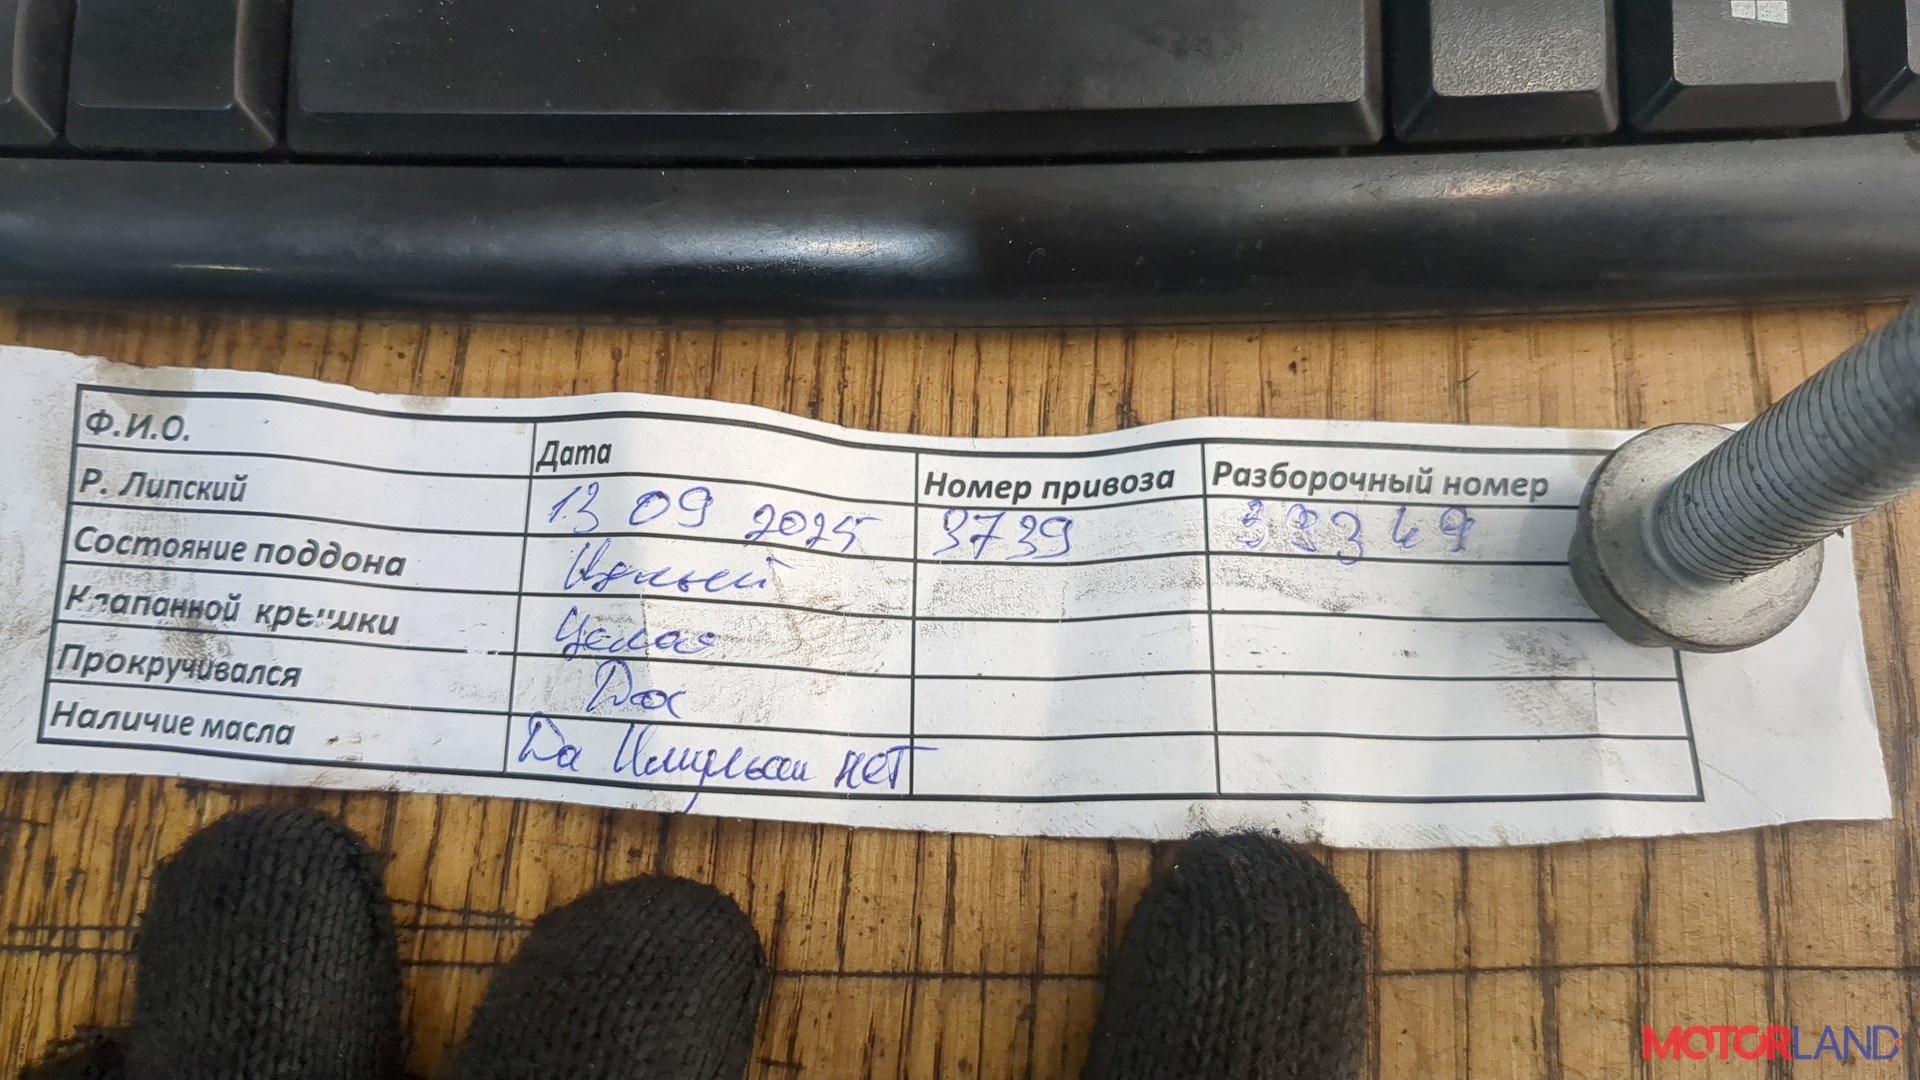 Ф.И.О. Дата Номер привоза Разборочный номер
Р. Липский 13 09 2025 3739 39349
Состояние поддона Целый
Клапанной крышки Целая
Прокручивался Да
Наличие масла Да нет
MOTORLAND